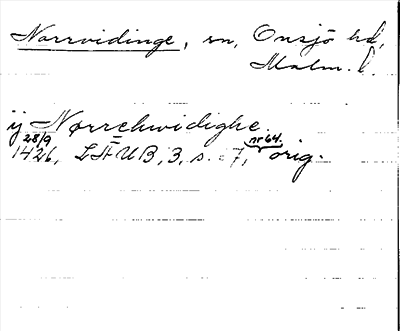 Norrvidinge, sn, Onsjö hd,
Malm. l.
ij Nørrehwidighe
28/9 1426, LÄUB, 3, s. 7, nr 64. orig.